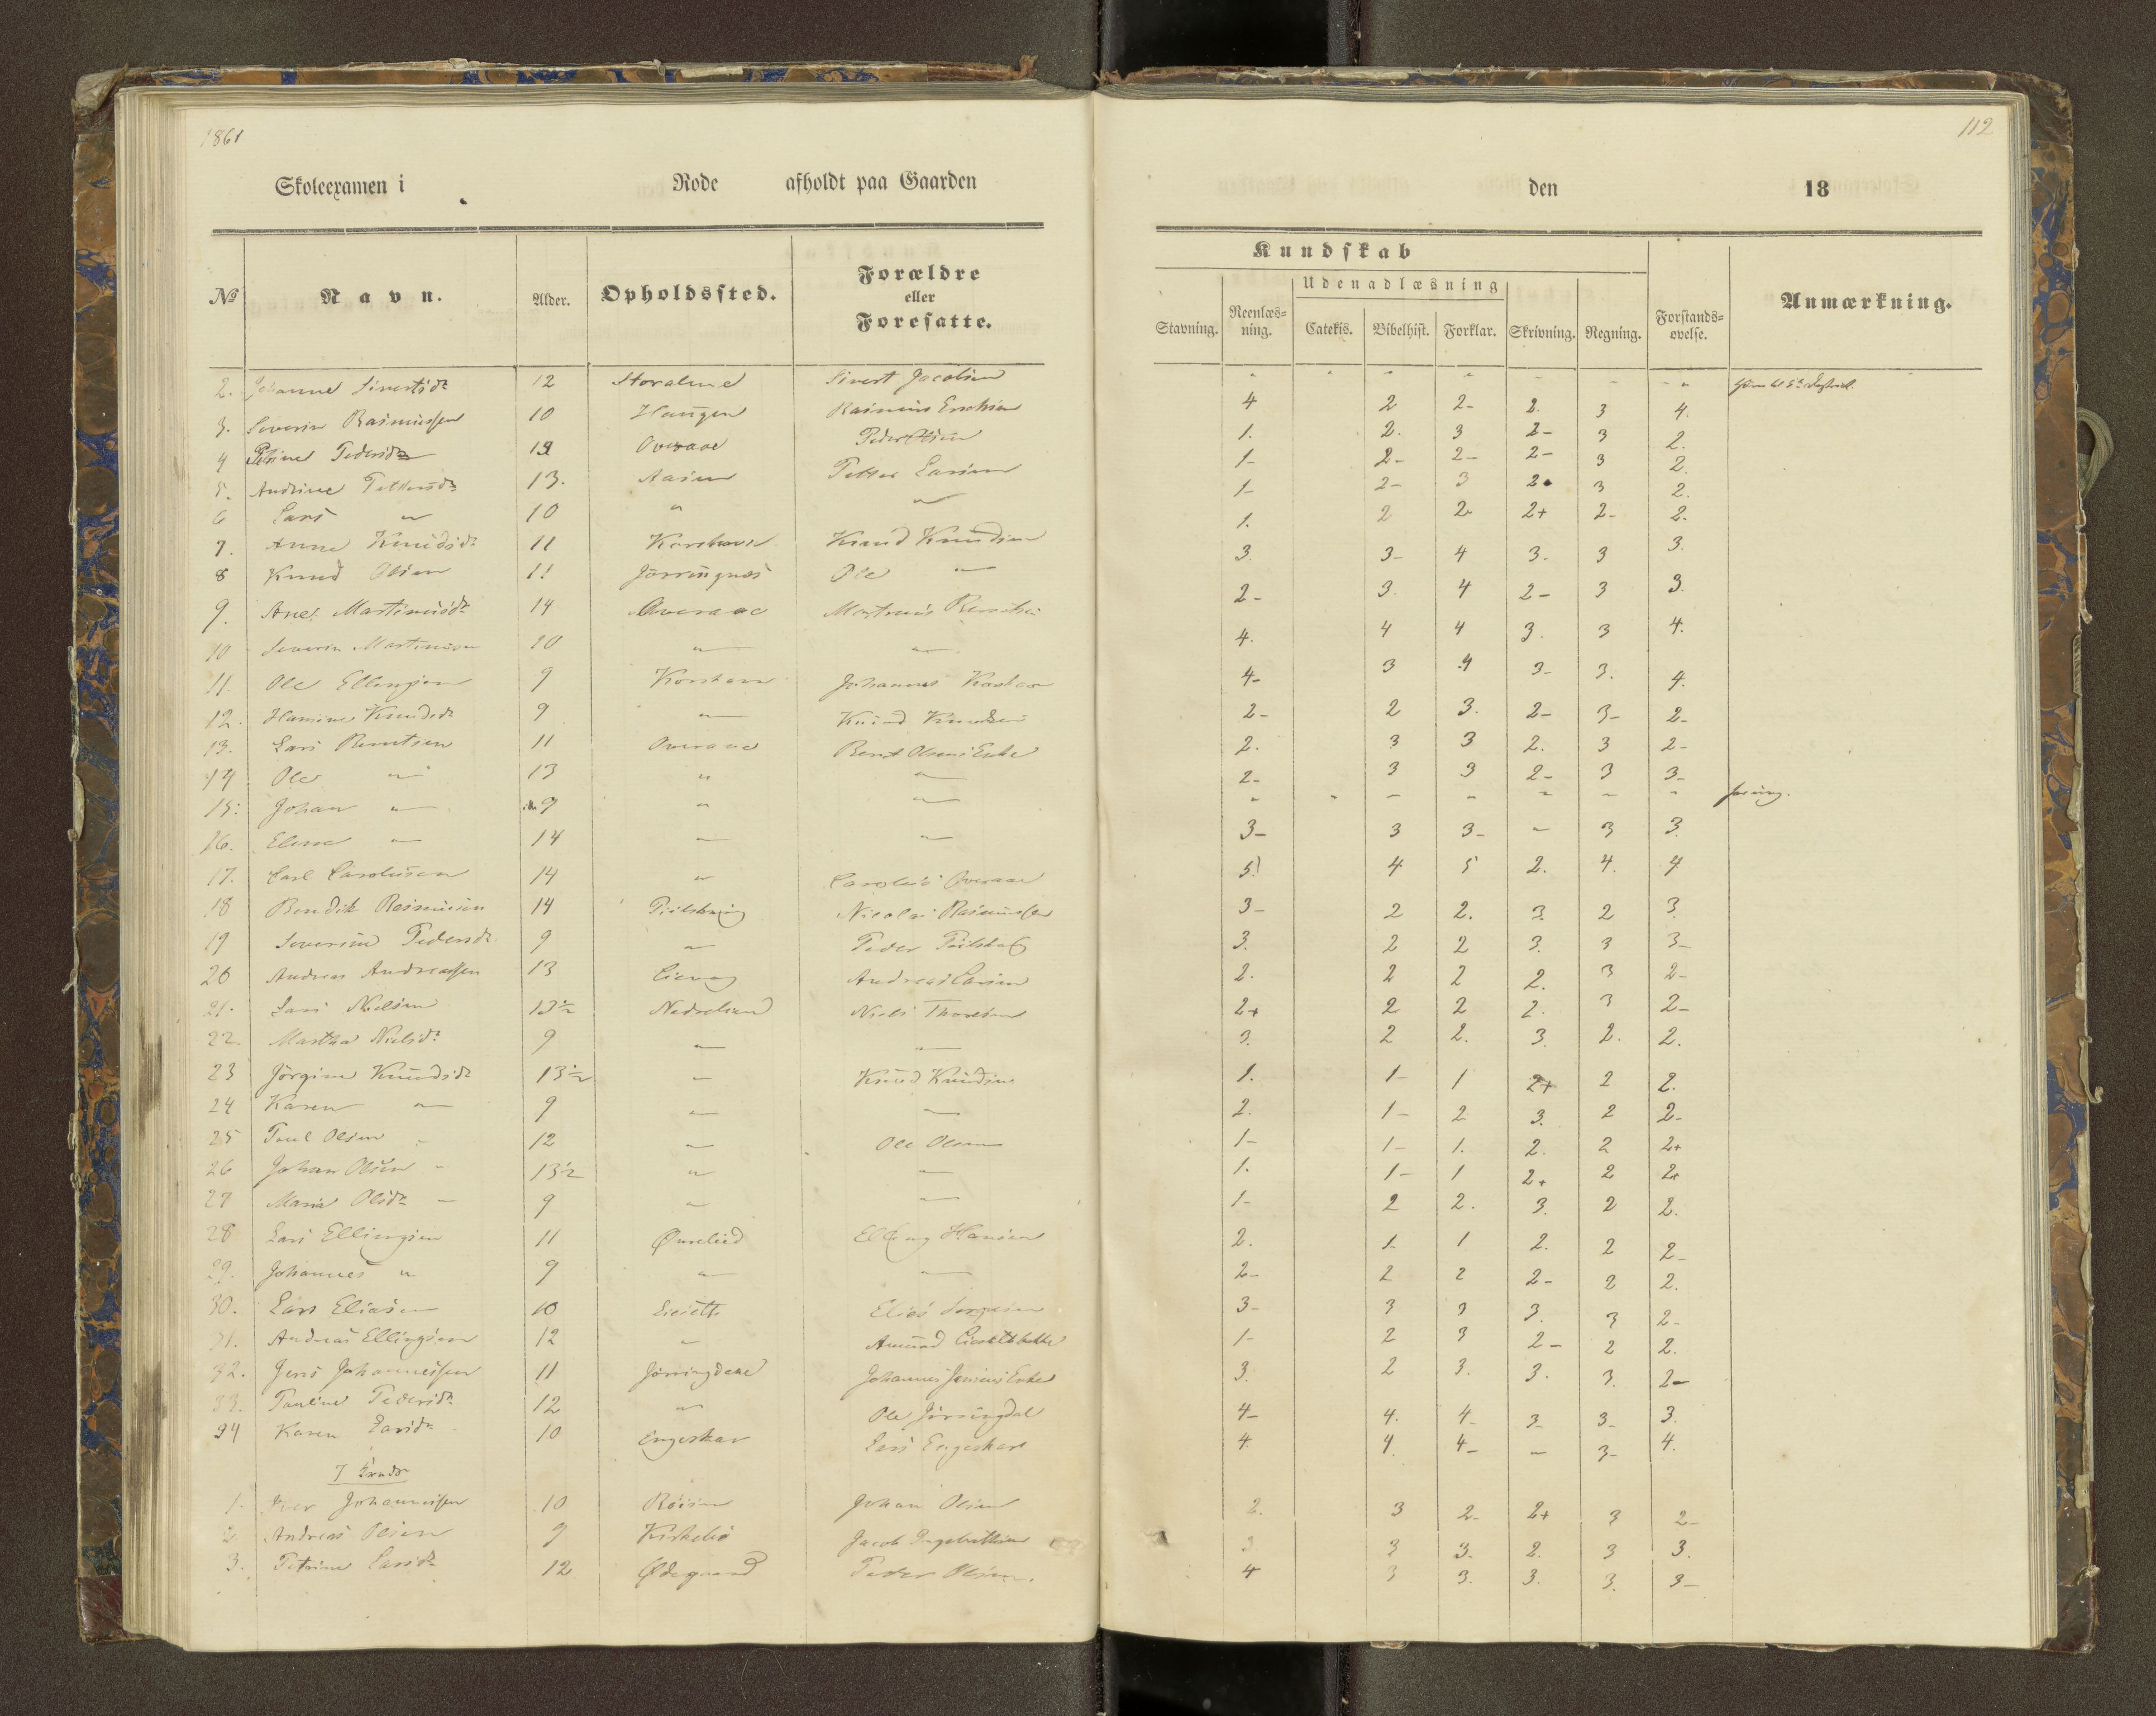 1861
112
Skoleexamen i Rode afholdt paa Gaarden den 18
Kundskab
Udenadlæsning
№ Navn. Alder. Opholdssted. Forældre eller Foresatte. Stavning. Reenlæs=ning. Catekis. Bibelhist. Forklar. Skrivning. Regning. Forstands=øvelse. Anmærkning.
2. Johanne Sivertsdr 12 Sivert Jacobsen " " " " " " "
3. Severin Rasmussen 10 Haugen Rasmus 4 2 2- 2. 3 4.
4 Petrine Pedersdr Overaae Peder Olsen 1. 2. 3 2- 3 2.
5. Andrine Pettersdr 13. Aasen Petter Larsen 1- 2- 2- 2- 3 2.
6 Lars " 10 " " 1- 2- 3 2. 3 2.
7. Anne Knudsdr 11 Korshavn Knud Knudsen 1. 2 2- 2+ 2- 2.
8 Knud Olsen 11 Jörringnæs Ole " 3. 3- 4 3. 3 3.
9. Ane Martinusdr 14 Overaae Martinus 2- 3. 4 2- 3 3.
10 Severin Martinusen 10 " " 4. 4 4 3. 3 4.
11. Ole Ellingsen 9 Korshavn Johannes Korshavn 4- 3 4 3- 3. 4.
12. Hansine Knudsdr 9 " Knud Knudsen 2- 2 3. 2- 3- 2-
13. Lars Berntsen 11 Overaae Bernt Olsens Enke 2. 3 3 2. 3 2-
14 Ole " 13 " " 2- 3 3 2- 3 3-
15. Johan " 9 " " " " " " " " " for ung.
16. Elene " 14 " " 3- 3 3- " 3 3.
17. Carl Carolusen 14 " Carolus Overaae 5 4 5 2. 4. 4
18 Bendik Rasmusen 14 Nicolai Rasmussen 3- 2 2. 3. 2 3.
19 Severine Pedersdr 9 " Peder 3. 2 2 3. 3 3-
20 Andreas Andreassen 13 Andreas Larsen 2. 2 2 2. 3 2-
21. Lars Nielsen 13½ Nedrelied Niels Thoresen 2+ 2 2 2. 3 2-
22. Martha Nielsdr 9 " " 3. 2 2. 3. 2. 2.
23 Jörgine Knudsdr 13½ " Knud Knudsen 1. 1- 1 2+ 2 2.
24 Karen " 9 " " 2. 1- 2 3. 2 2-
25 Poul Olsen 12 " Ole Olsen 1- 1- 1. 2. 2 2+
26 Johan Olsen 13½ " " 1. 1- 1 2+ 2 2+
27 Maria Olsdr 9 " " 1- 2 2. 3. 2 2.
28 Lars Ellingsen 11 Øvrelied Elling Hansen 2. 1- 1 2. 2 2-
29. Johannes " 9 " " 2- 2 2 2- 2 2.
30. Lars Eliasen 10 Liesetth Elias 3- 3 3 3. 3 2-
31. Andreas Ellingsen 12 " Amund 1- 2 3 2- 2 2.
32. Jens Johannessen 11 Jörringdal Johannes Jensens Enke 3. 2 3. 3. 3. 2-
33. Pauline Pedersdr 12 " Ole Jörringdal 4- 4. 4- 3- 3- 3.
34 Karen Larsdr 10 Engeskar Lars Engeskar 4. 4. 4- " 3- 4.
7 Kreds
1. Iver Johannessen 10 Röisen Johan Olsen 2. 3 2- 2+ 3 2-
2 Andreas Olsen 9 Kirkebö Jacob Ingebrigtsen 3 3 3- 2. 3 3.
3. Petrine Larsdr 12 Ødegaard Peder Olsen. 4 3 3. 3. 3. 3-